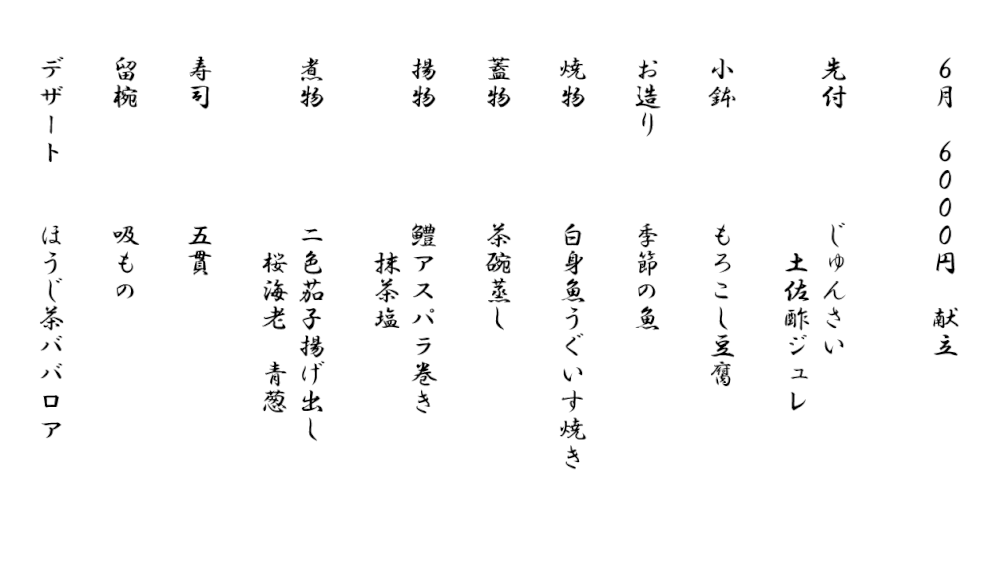 6月　6000円　献立
先付　じゅんさい
土佐酢ジュレ
小鉢　もろこし豆腐
お造り　季節の魚
焼物　白身魚うぐいす焼き
蓋物　茶碗蒸し
揚物　鱧アスパラ巻き
抹茶塩
煮物　二色茄子揚げ出し
桜海老　青葱
寿司　五貫
留椀　吸もの
デザート　ほうじ茶ババロア